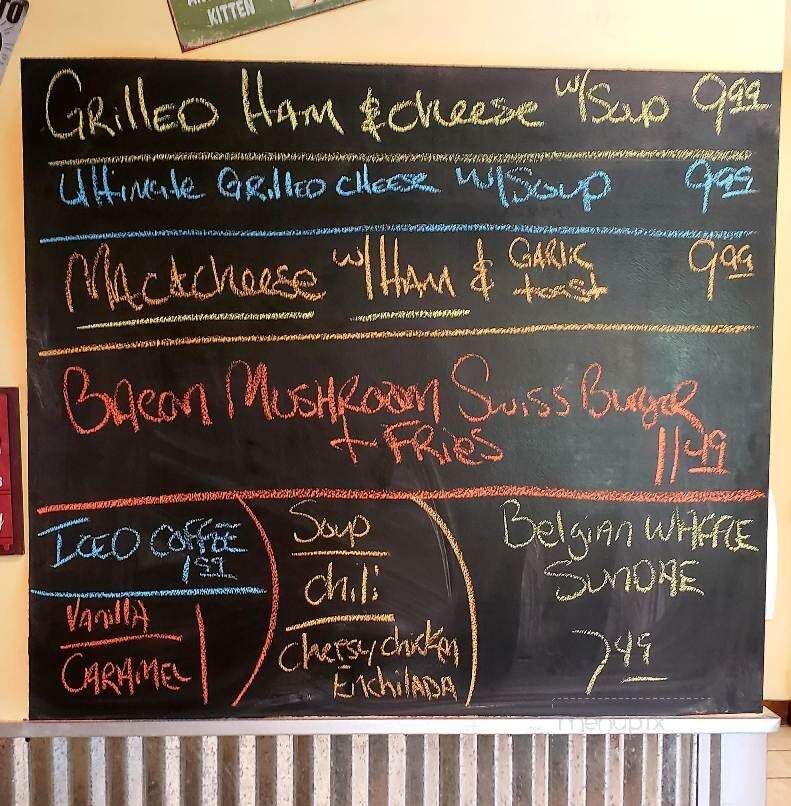 KITTEN
GRILLED HAM & cheese w/Soup 9.99
Ultimate GRilled CHEESE w/Soup 9.99
Mac&cheese w/HAM & GARLIC toast 9.99
Bacon MUSHROOM Swiss Burger
+ FRIES 11.49
ICED COFFEE
Vanilla
CARAMEL
Soup
chili
cheesy chicken
Enchilada
Belgian WAFFLE
SUNDAE
7.49
menupix